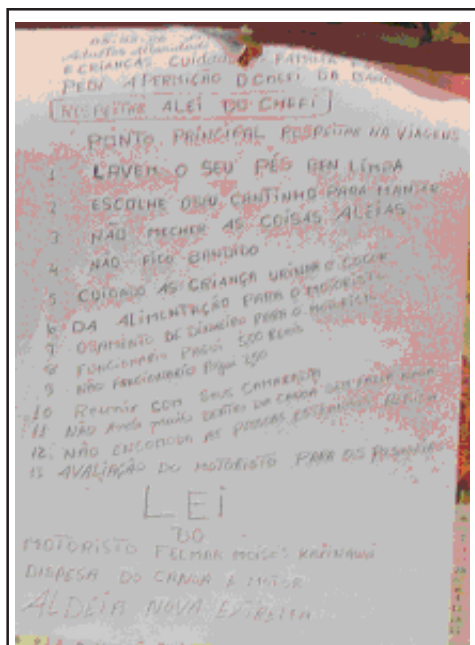 E CRIANÇAS CUIDADO FAMILIA
PEDI APERMIÇÃO DO CHEFI DA
RESPEITAR ALEI DO CHEFI
PONTO PRINCIPAL RESPEITAR NA VIAGENS
1 LAVEM O SEU PÉS BEN LIMPA
2 ESCOLHE OSEU CANTINHO PARA MANTER
3 NÃO MECHER AS COISAS ALEIAS
4 NÃO FICO BANDIDO
5 CUIDADO AS CRIANÇA URINA O COCOR
6 DA ALIMENTAÇÃO PARA O MOTORISTO
7 OSAMENTO DE DINHEIRO PARA O MOTORISTO
8 FUNCIONARIO PAGUI 500 REAIS
9 NÃO FUNCIONARIO PAGUI 250
10 REUNIR COM SEUS CAMARADA
11 NÃO ANDA MUITO DENTRO DA CANOA SEM FAZER NADA
12 NÃO ENCOMODA AS PESSOAS
13 AVALIAÇÃO DO MOTORISTO PARA OS
LEI
DO
MOTORISTO FELMAR MOISES KAXINAWA
DISPESA DO CANOA E MOTOR
ALDEIA NOVA EXTREMA